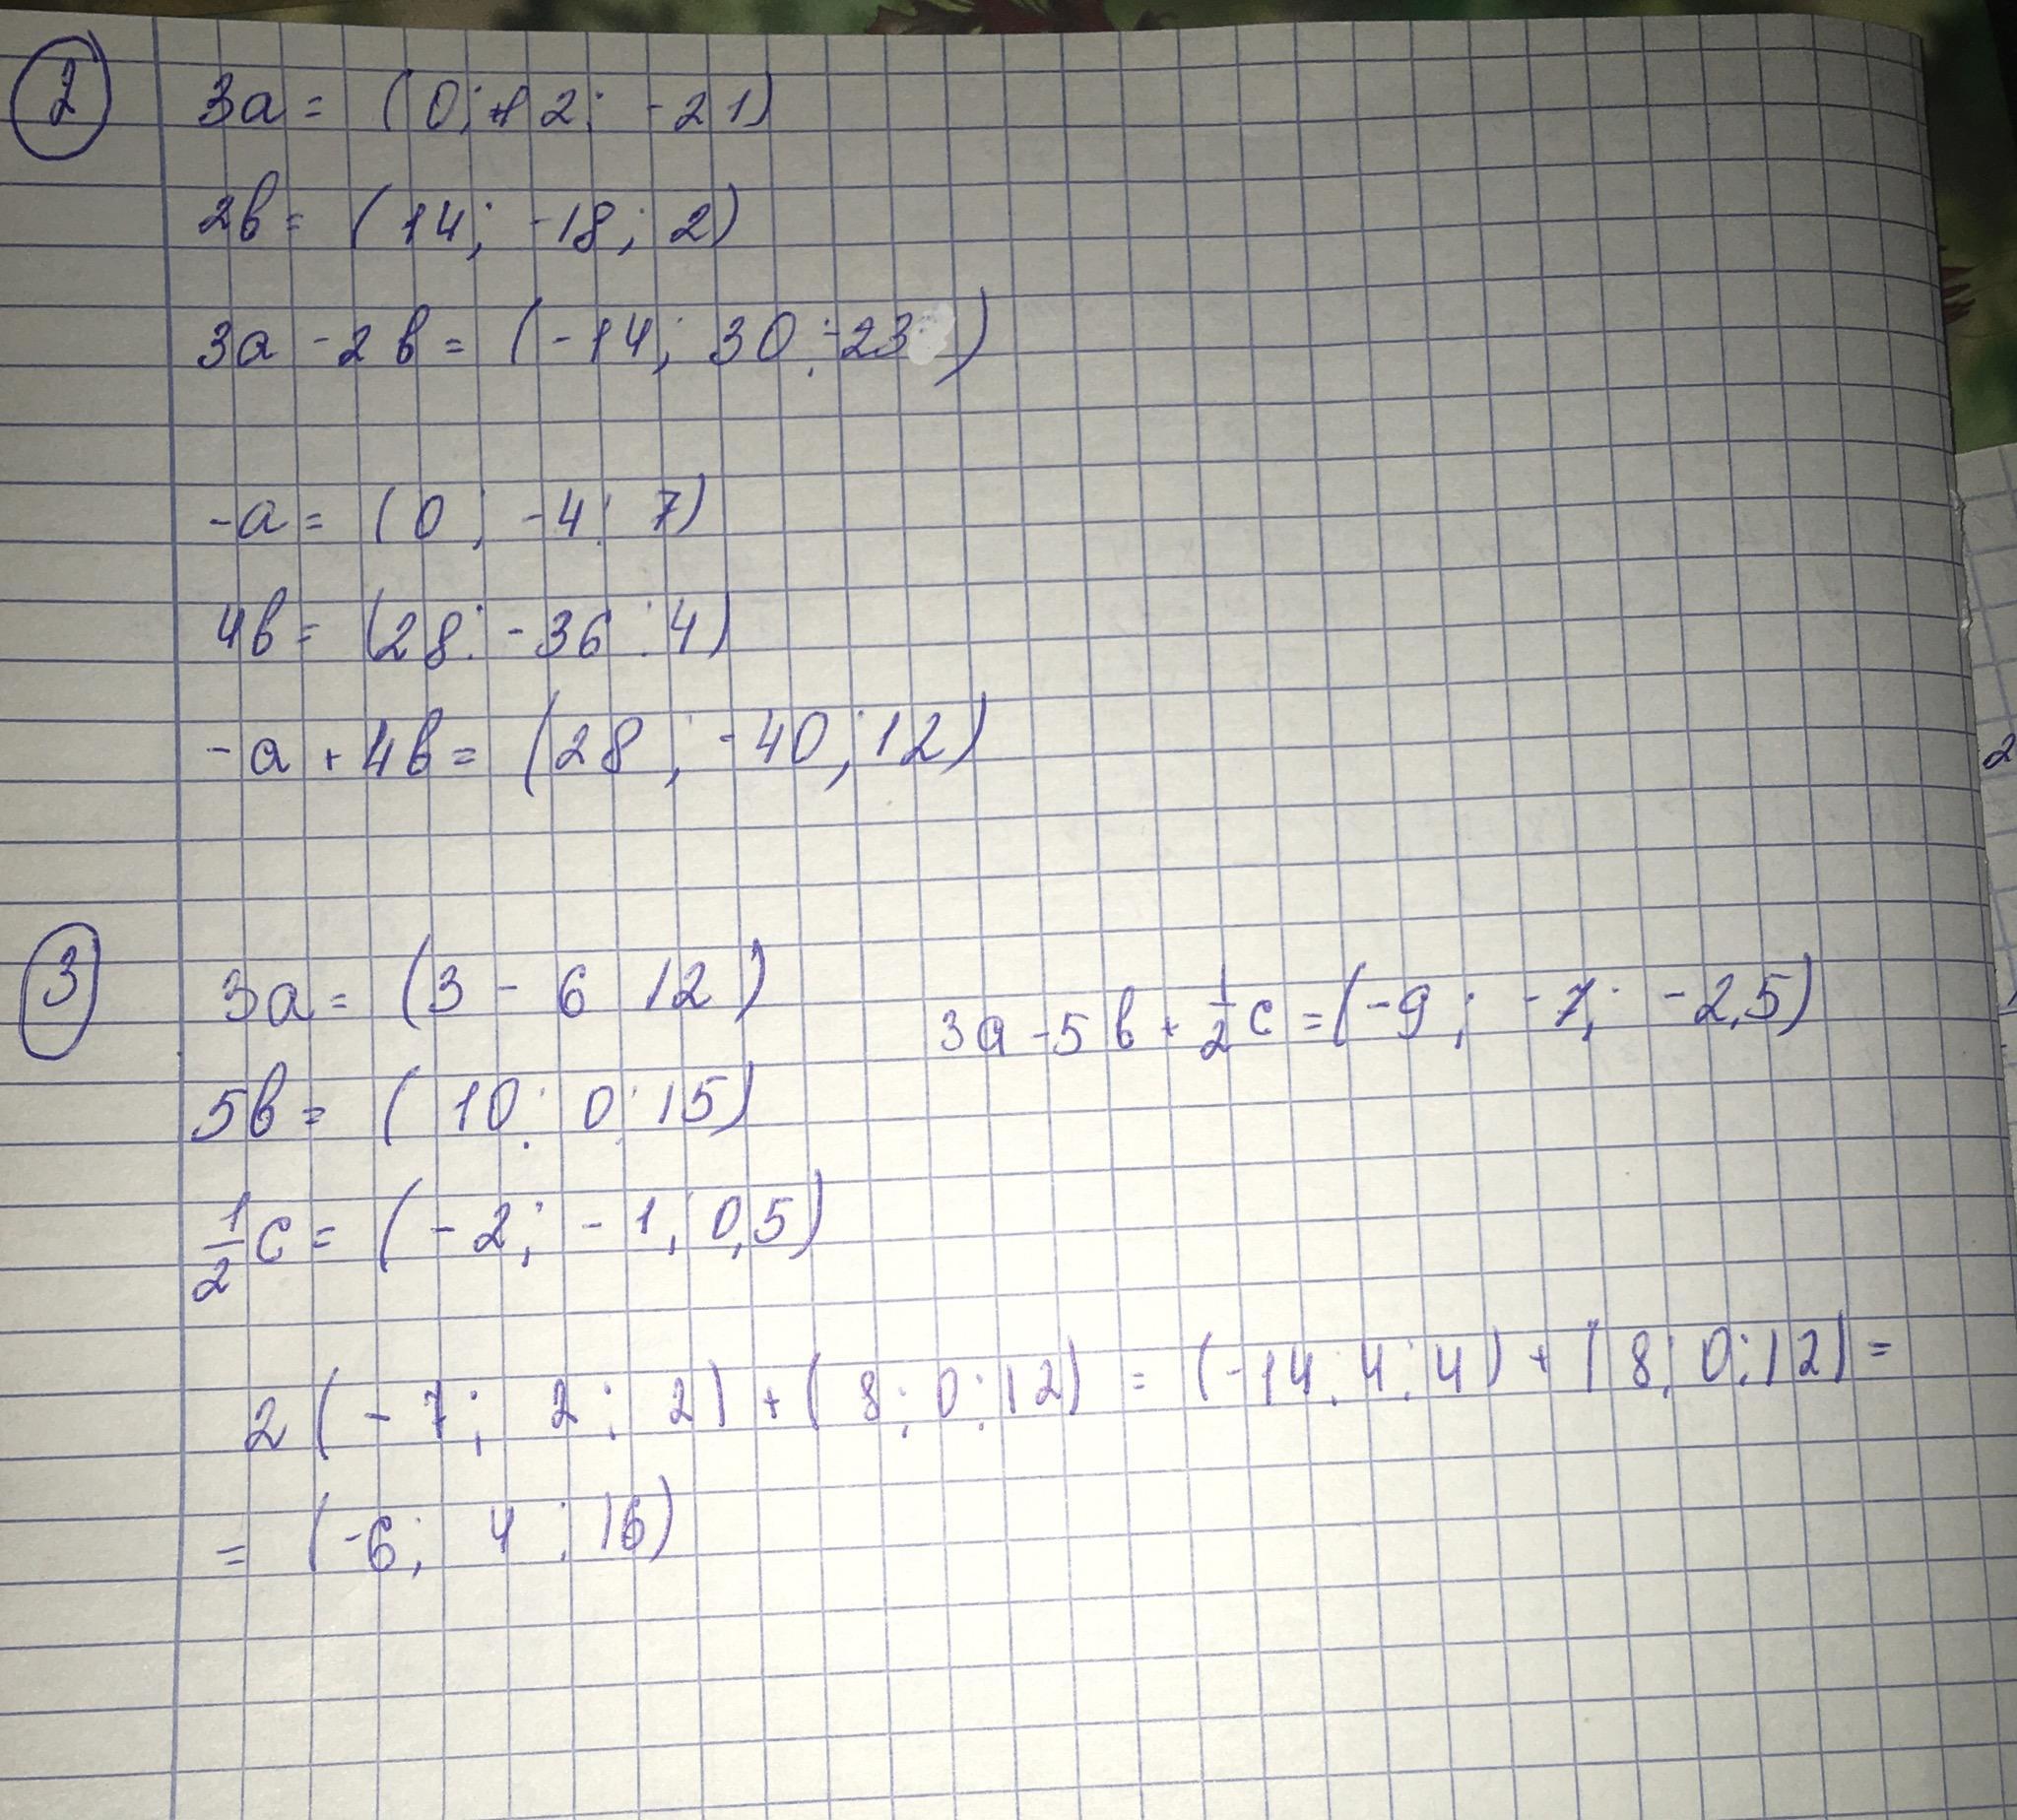 2
3a = (0; 12; -21)
2b = (14; -18; 2)
3a - 2b = (-14; 30; -23)
-a = (0; -4; 7)
4b = (28; -36; 4)
-a + 4b = (28; -40; 12)
3
3a = (3 - 6 12)
3a - 5b + 1/2 c = (-9; -7; -2,5)
5b = (10; 0; 15)
1/2 c = (-2; -1, 0,5)
2(-7; 2; 2) + (8; 0; 12) = (-14; 4; 4) + (8; 0; 12) =
= (-6; 4; 16)
2